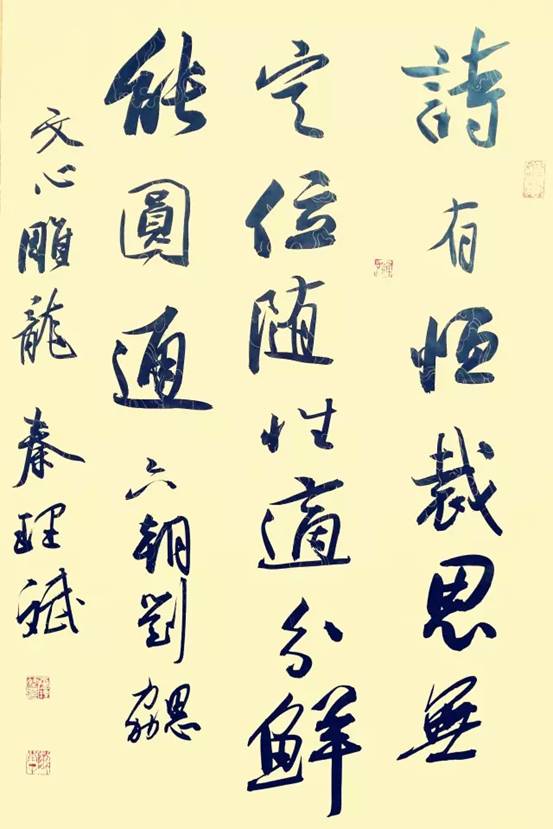 詩有恒裁思無
定位随性適分鮮
能圓通六朝劉勰
文心雕龍秦理斌